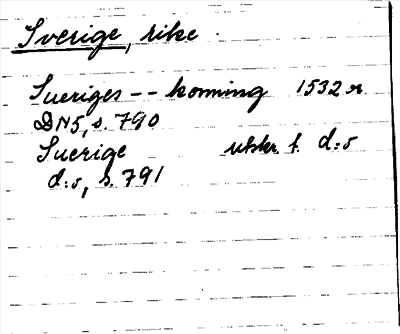 Sverige, rike.
Sueriges -- konning 1532 or.
DN5, s. 790
Suerige utskr. f. d:o
d:o, s. 791